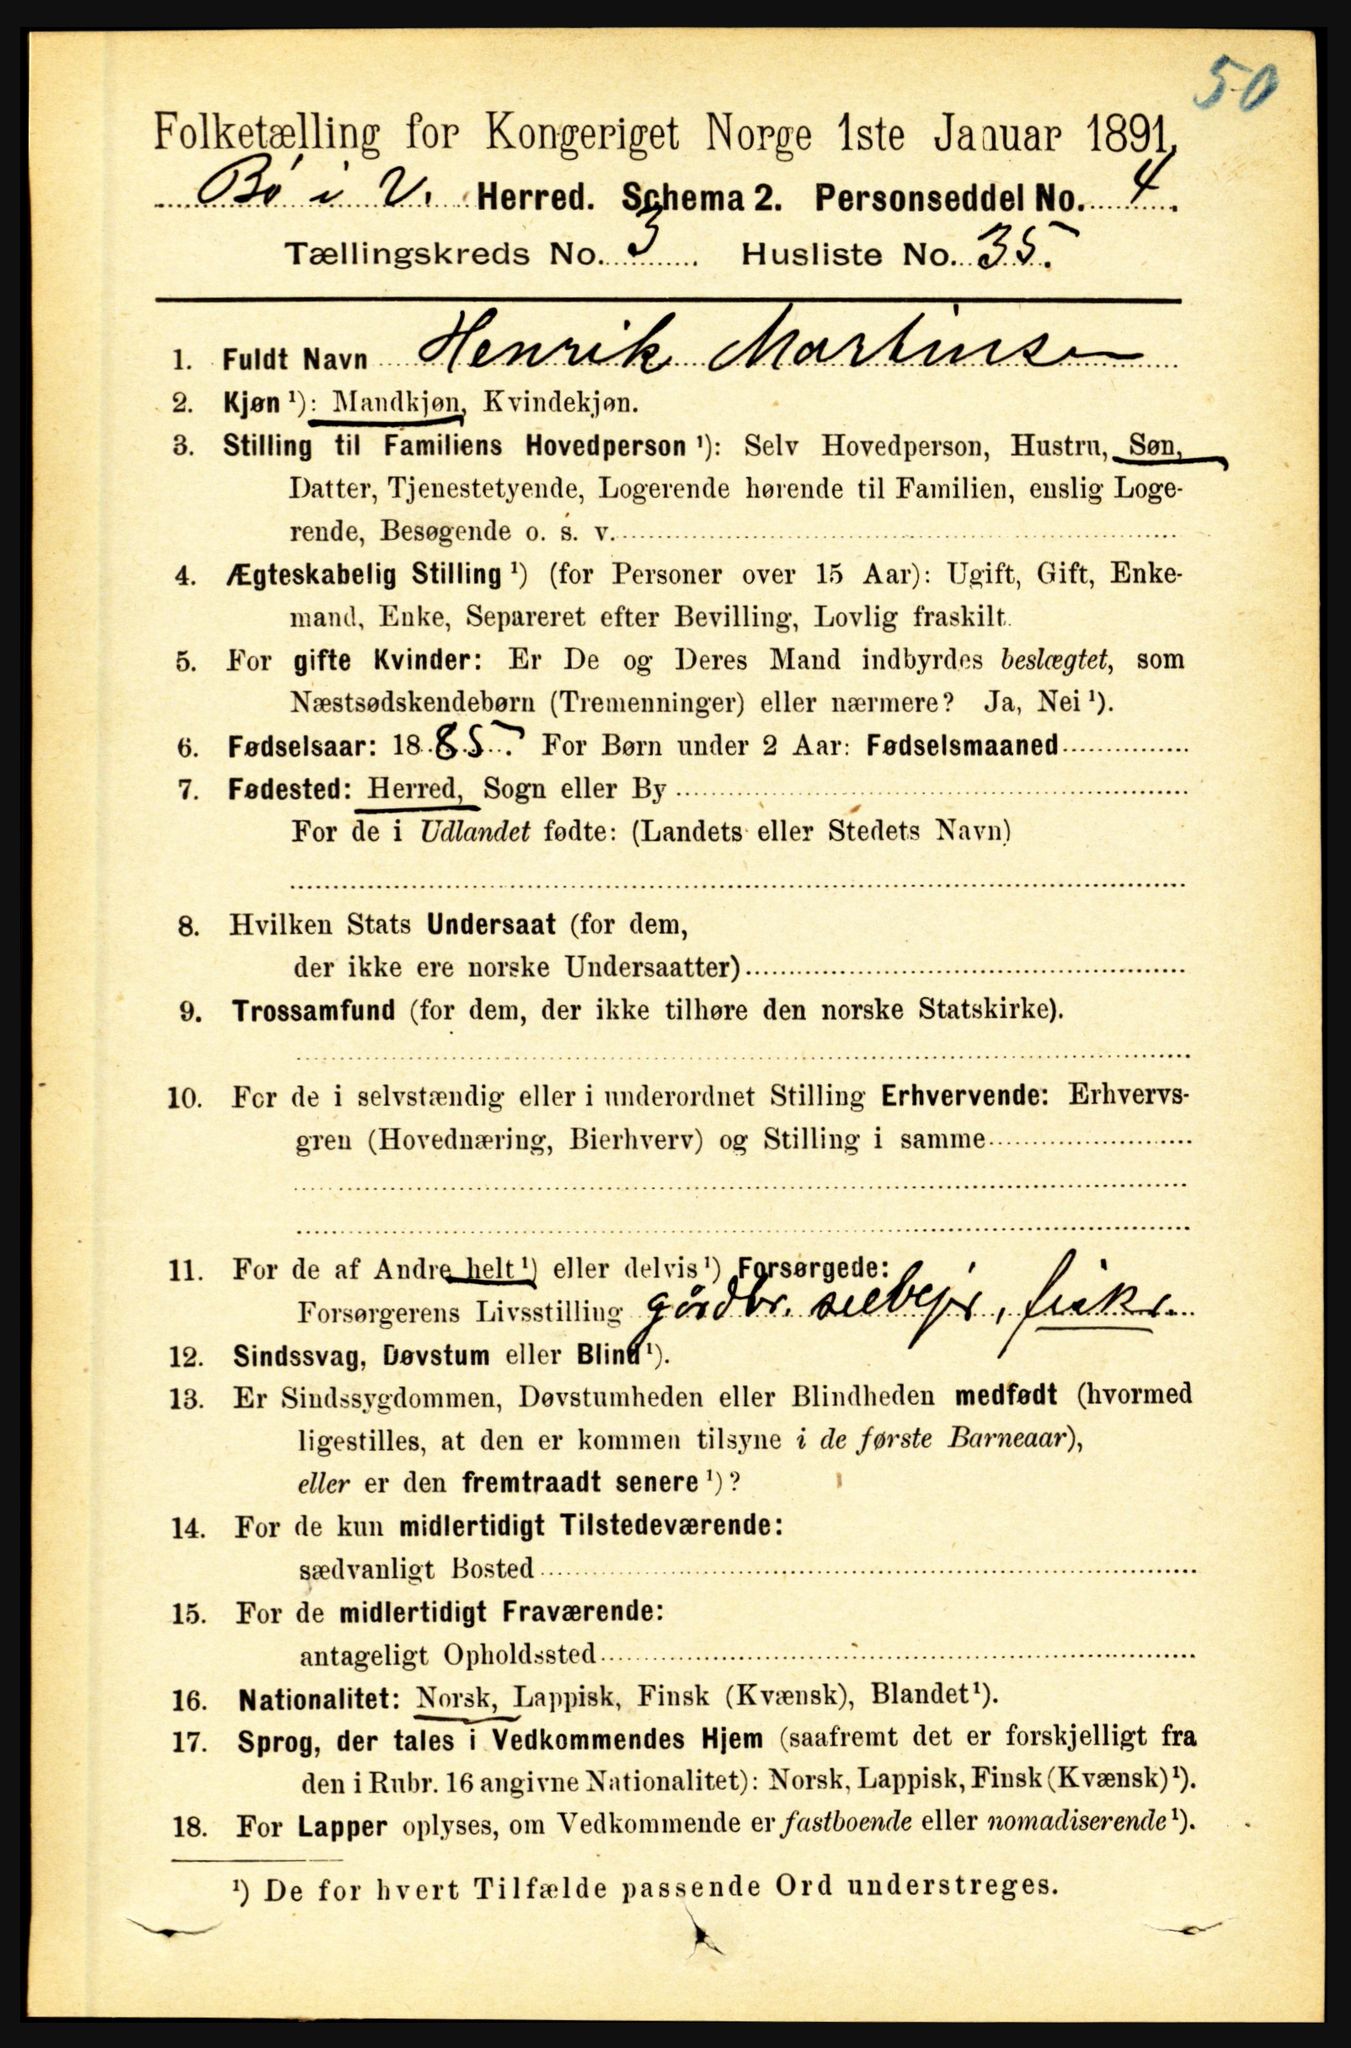 50
Folketælling for Kongeriget Norge 1ste Januar 1891.
Bø i V. Herred. Schema 2. Personseddel No. 4.
Tællingskreds No. 3. Husliste No. 35.
1. Fuldt Navn Henrik Martinsen
2. Kjøn ¹): Mandkjøn, Kvindekjøn.
3. Stilling til Familiens Hovedperson ¹): Selv Hovedperson, Hustru, Søn,
Datter, Tjenestetyende, Logerende hørende til Familien, enslig Loge-
rende, Besøgende o. s. v.
4. Ægteskabelig Stilling ¹) (for Personer over 15 Aar): Ugift, Gift, Enke-
mand, Enke, Separeret efter Bevilling, Lovlig fraskilt.
5. For gifte Kvinder: Er De og Deres Mand indbyrdes beslægtet, som
Næstsødskendebørn (Tremenninger) eller nærmere? Ja, Nei ¹).
6. Fødselsaar: 1885. For Børn under 2 Aar: Fødselsmaaned
7. Fødested: Herred, Sogn eller By
For de i Udlandet fødte: (Landets eller Stedets Navn)
8. Hvilken Stats Undersaat (for dem,
der ikke ere norske Undersaatter)
9. Trossamfund (for dem, der ikke tilhøre den norske Statskirke).
10. For de i selvstændig eller i underordnet Stilling Erhvervende: Erhvervs-
gren (Hovednæring, Bierhverv) og Stilling i samme
11. For de af Andre helt ¹) eller delvis ¹) Forsørgede:
Forsørgerens Livsstilling gårdbr. selvejer, fisker
12. Sindssvag, Døvstum eller Blind ¹).
13. Er Sindssygdommen, Døvstumheden eller Blindheden medfødt (hvormed
ligestilles, at den er kommen tilsyne i de første Barneaar),
eller er den fremtraadt senere ¹)?
14. For de kun midlertidigt Tilstedeværende:
sædvanligt Bosted
15. For de midlertidigt Fraværende:
antageligt Opholdssted
16. Nationalitet: Norsk, Lappisk, Finsk (Kvænsk), Blandet ¹).
17. Sprog, der tales i Vedkommendes Hjem (saafremt det er forskjelligt fra
den i Rubr. 16 angivne Nationalitet): Norsk, Lappisk, Finsk (Kvænsk) ¹).
18. For Lapper oplyses, om Vedkommende er fastboende eller nomadiserende ¹).
¹) De for hvert Tilfælde passende Ord understreges.